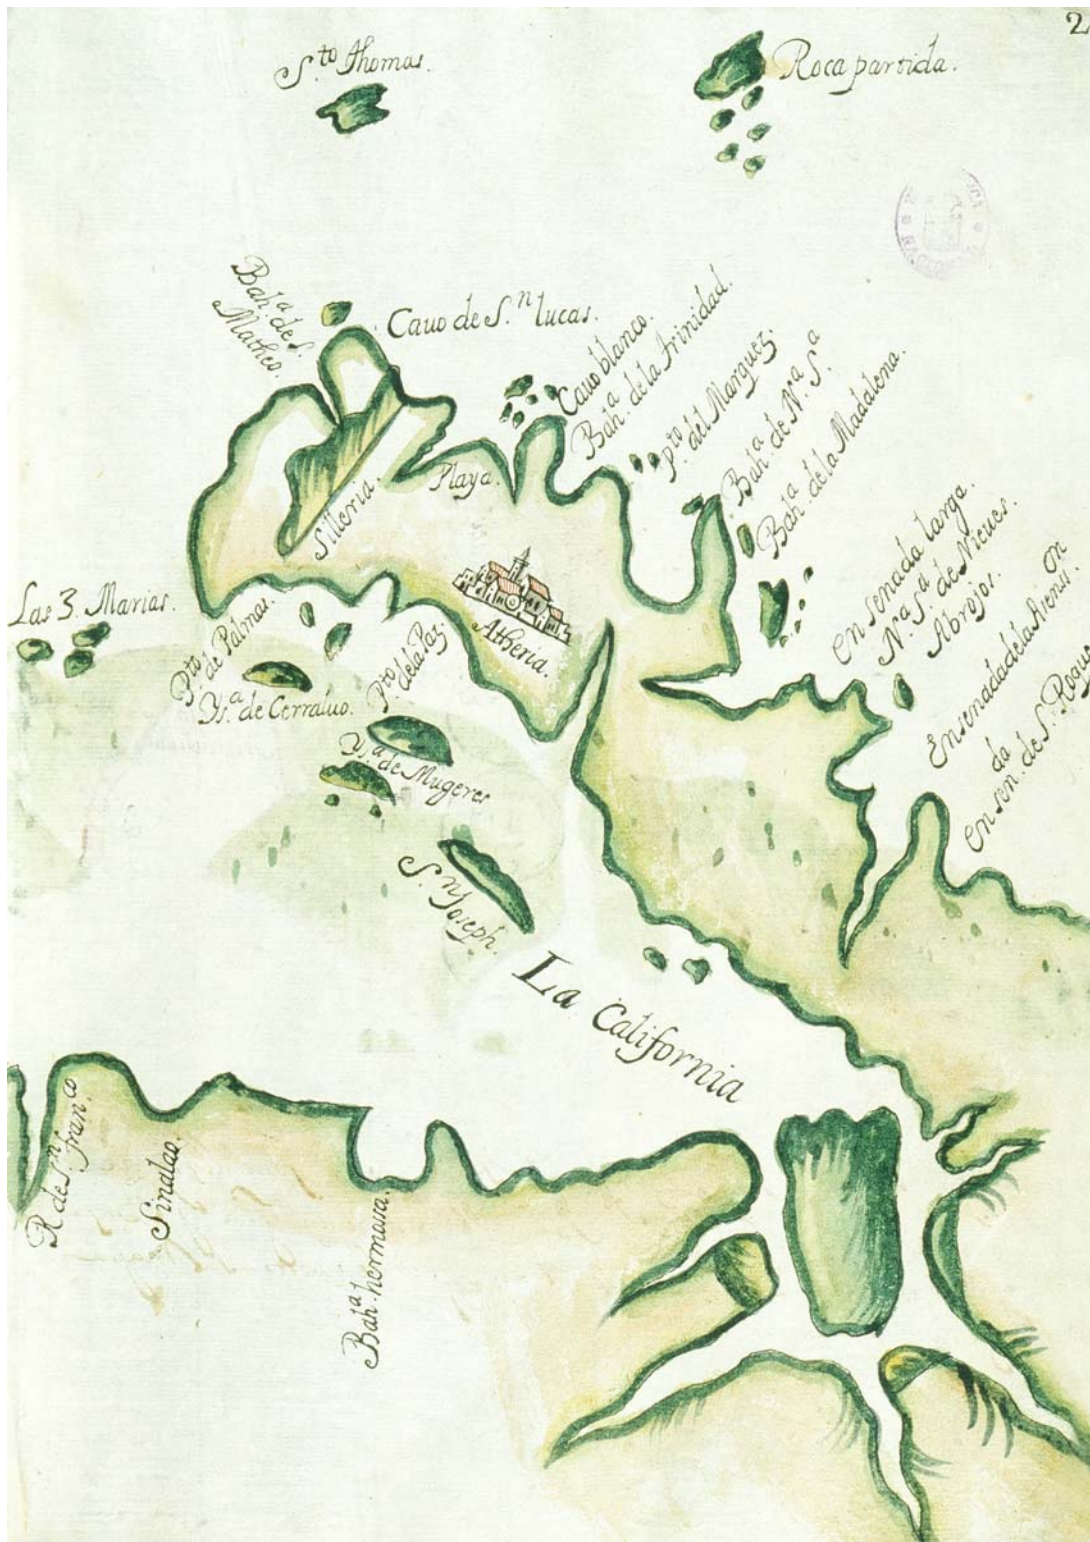 2
S.to Thomas.
Roca partida.
Bah.a de S.
Matheo.
Cauo de S.n lucas.
Cauo blanco.
Bah.a de la trinidad.
p.to del Marquez.
Bah.a de N.a S.a
Bah.a de la Madalena.
Silleria.
Playa.
Ensenada larga.
N.a S.a de Nieues.
Abrojos.
Ensenada de la Arenas.
Ensen.da de S. Roque
Las 3. Marias.
p.to de Palmas.
Ys.a de Cerraluo.
p.to de la Paz.
Atheria.
Ys.a de Mugeres
S.n Joseph.
La California
R de S.n fran.co
Sinaloa.
Bah.a hermosa.